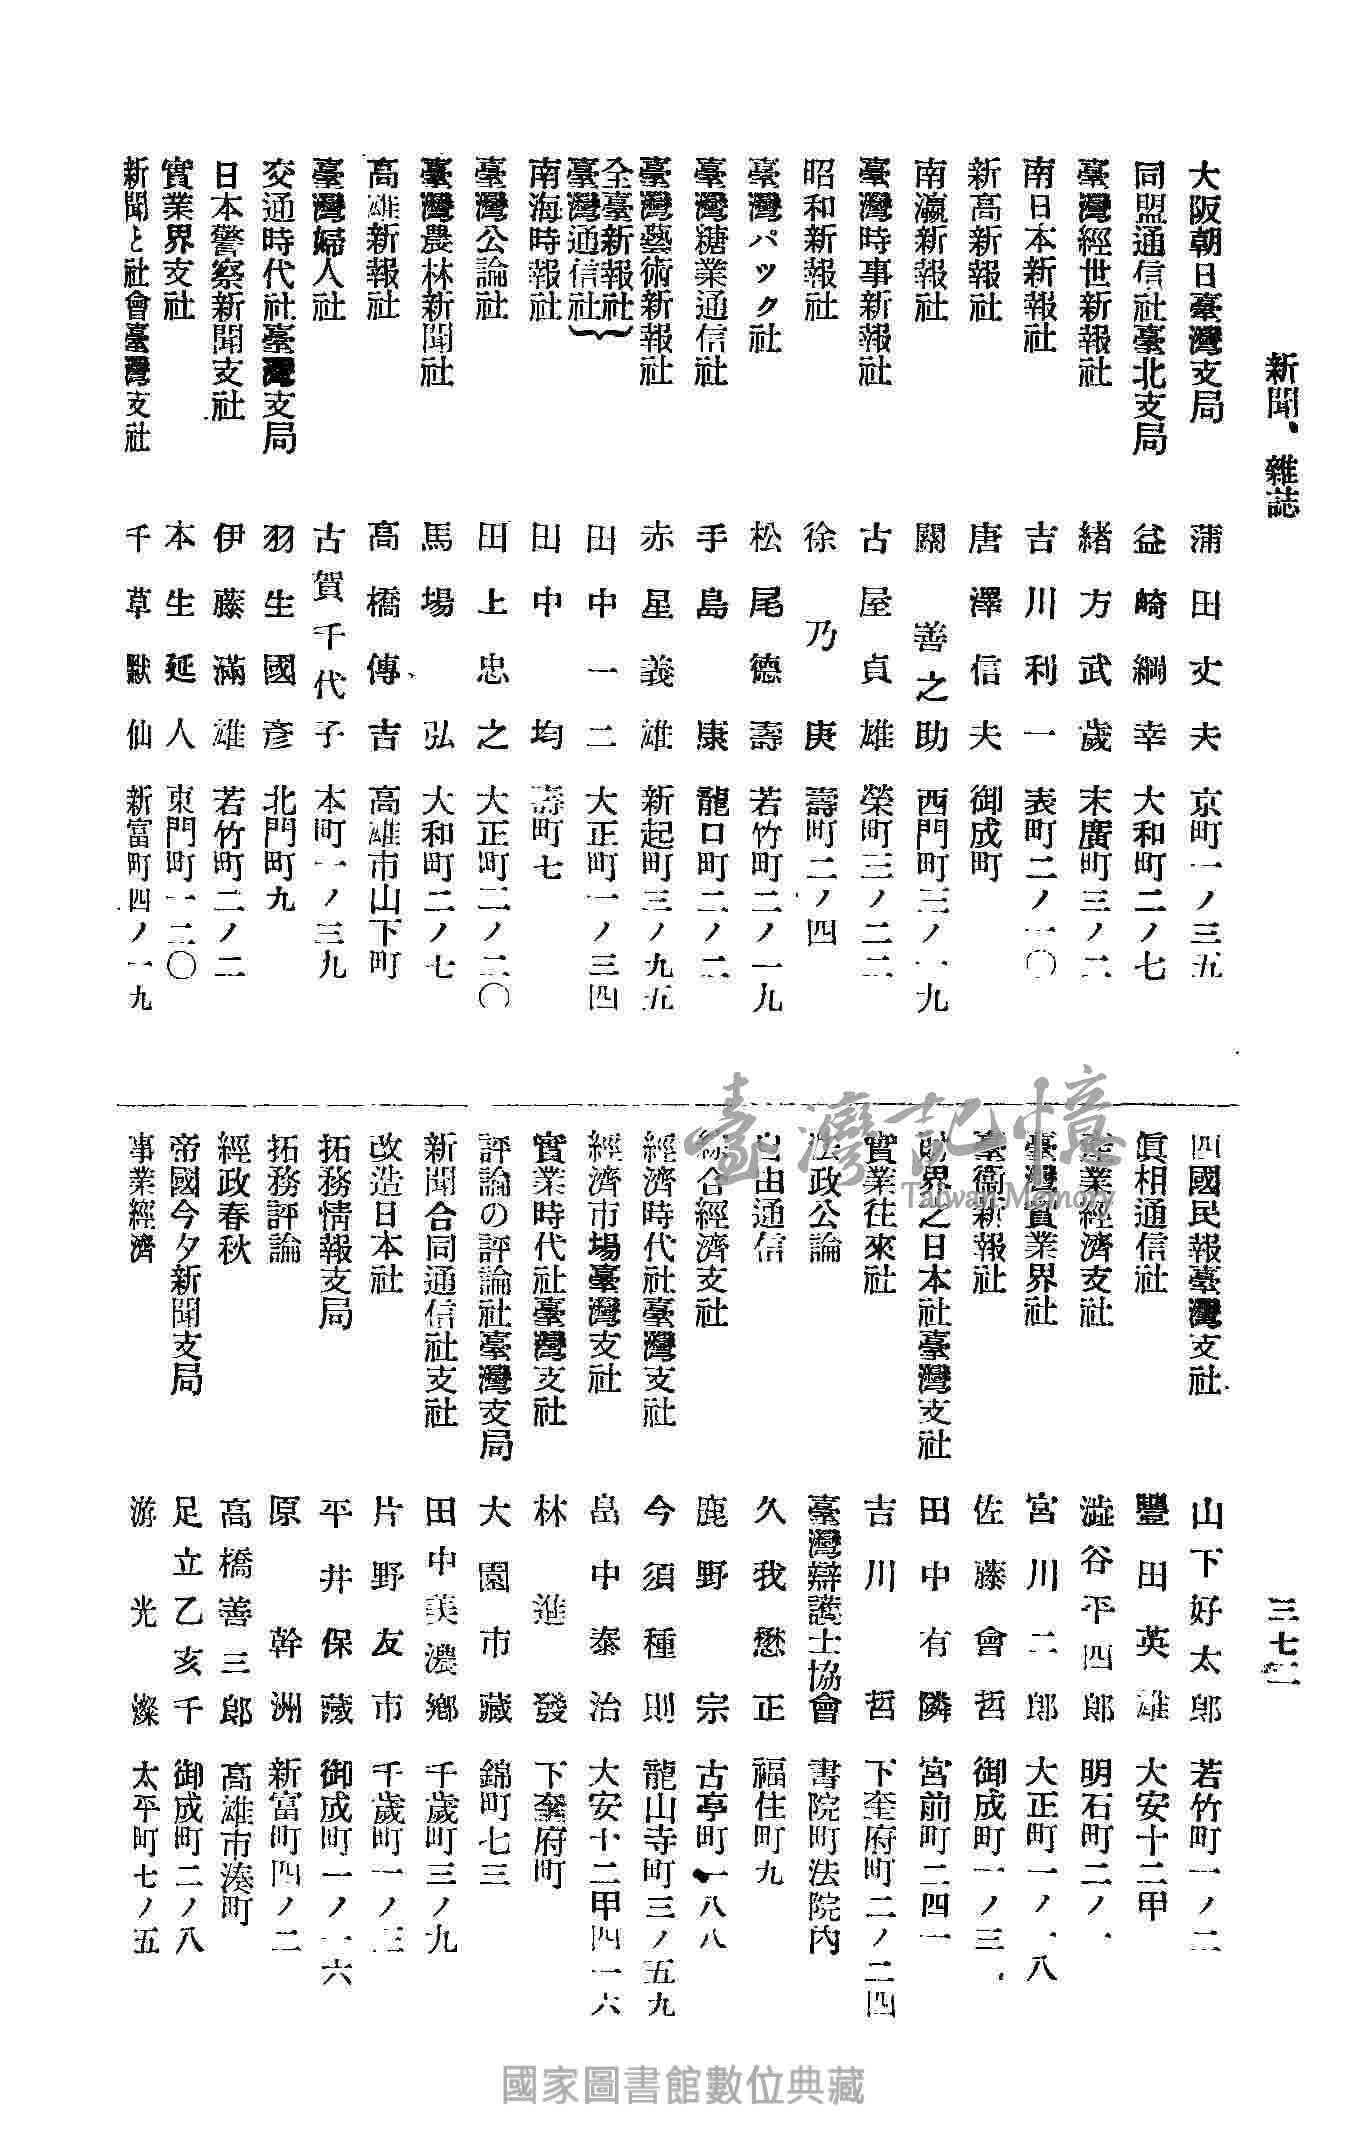 新聞、雜誌
三七二
大阪朝日臺灣支局 蒲田丈夫 京町一ノ三五
同盟通信社臺北支局 益崎綱幸 大和町二ノ七
臺灣經世新報社 緖方武歲 末廣町三ノ二
南日本新報社 吉川利一 表町二ノ一〇
新高新報社 唐澤信夫 御成町
南瀛新報社 關善之助 西門町三ノ一九
臺灣時事新報社 古屋貞雄 榮町三ノ二二
昭和新報社 徐乃庚 壽町二ノ四
臺灣パック社 松尾德壽 若竹町二ノ一九
臺灣糖業通信社 手島康 龍口町二ノ二
臺灣藝術新報社 赤星義雄 新起町三ノ九五
全臺新報社
臺灣通信社 田中一二 大正町一ノ三四
南海時報社 田中均 壽町七
臺灣公論社 田上忠之 大正町二ノ二〇
臺灣農林新聞社 馬場弘 大和町二ノ七
高雄新報社 高橋傳吉 高雄市山下町
臺灣婦人社 古賀千代子 本町一ノ三九
交通時代社臺灣支局 羽生國彥 北門町九
日本警察新聞支社 伊藤滿雄 若竹町二ノ二
實業界支社 本生延人 東門町一二〇
新聞と社會臺灣支社 千草默仙 新富町四ノ一九
四國民報臺灣支社 山下好太郎 若竹町一ノ二
眞相通信社 豐田英雄 大安十二甲
產業經濟支社 澁谷平四郎 明石町二ノ一
臺灣實業界社 宮川二郎 大正町一ノ一八
臺衞新報社 佐藤會哲 御成町一ノ三
財界之日本社臺灣支社 田中有隣 宮前町二四一
實業往來社 吉川哲 下奎府町二ノ二四
法政公論 臺灣辯護士協會 書院町法院內
自由通信 久我懋正 福住町九
綜合經濟支社 鹿野宗 古亭町一八八
經濟時代社臺灣支社 今須種則 龍山寺町三ノ五九
經濟市場臺灣支社 畠中泰治 大安十二甲四一六
實業時代社臺灣支社 林進發 下奎府町
評論の評論社臺灣支局 大園市藏 錦町七三
新聞合同通信社支社 田中美濃鄕 千歲町三ノ九
改造日本社 片野友市 千歲町一ノ三
拓務情報支局 平井保藏 御成町一ノ一六
拓務評論 原幹洲 新富町四ノ二
經政春秋 高橋善三郎 高雄市湊町
帝國今夕新聞支局 足立乙亥千 御成町二ノ八
事業經濟 游光燦 太平町七ノ五
臺灣記憶
Taiwan Memory
國家圖書館數位典藏